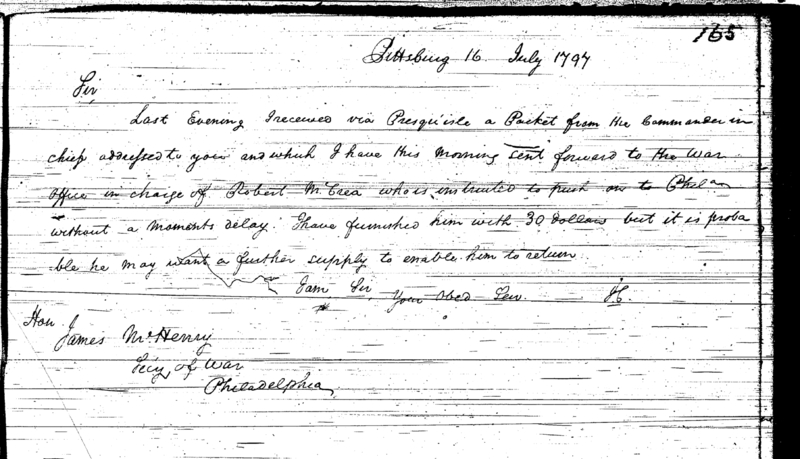 165
Pittsburg 16 July 1797
Sir,
Last Evening I received via Presqu'isle a Packet from the Commander in
chief addressed to you and which I have this morning sent forward to the War
office in charge of Robert McCrea who is instructed to push on to Phila
without a moments delay. I have furnished him with 30 dollars but it is proba
ble he may want a further supply to enable him to return.
I am Sir, Your Obed Ser.
Hon
James McHenry
Secy of War
Philadelphia